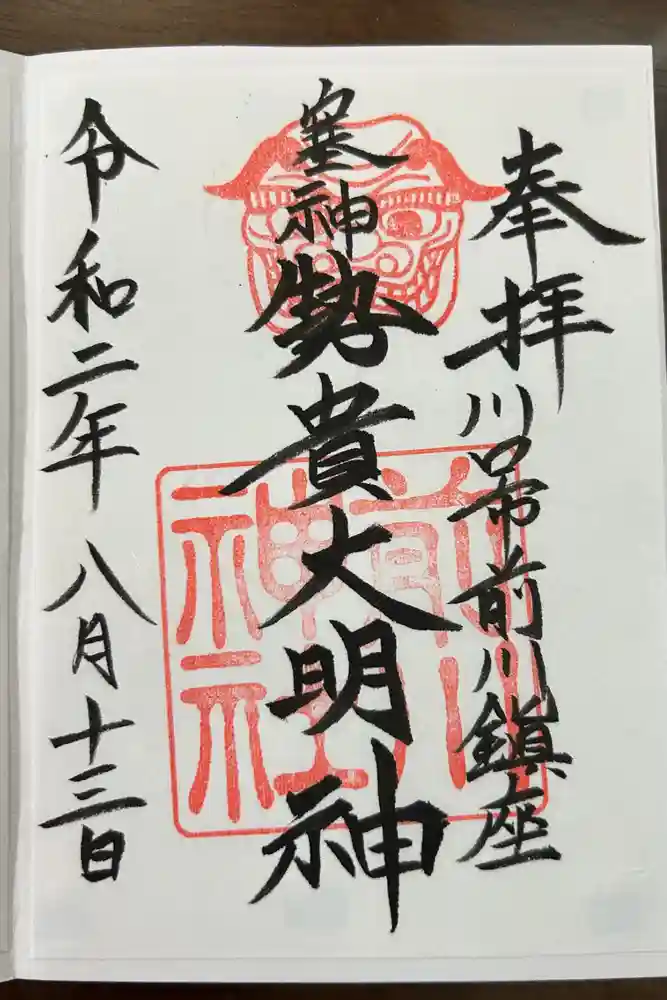 奉拝
川口市前川鎮座
塞神
勢貴大明神
令和二年八月十三日
前川神社